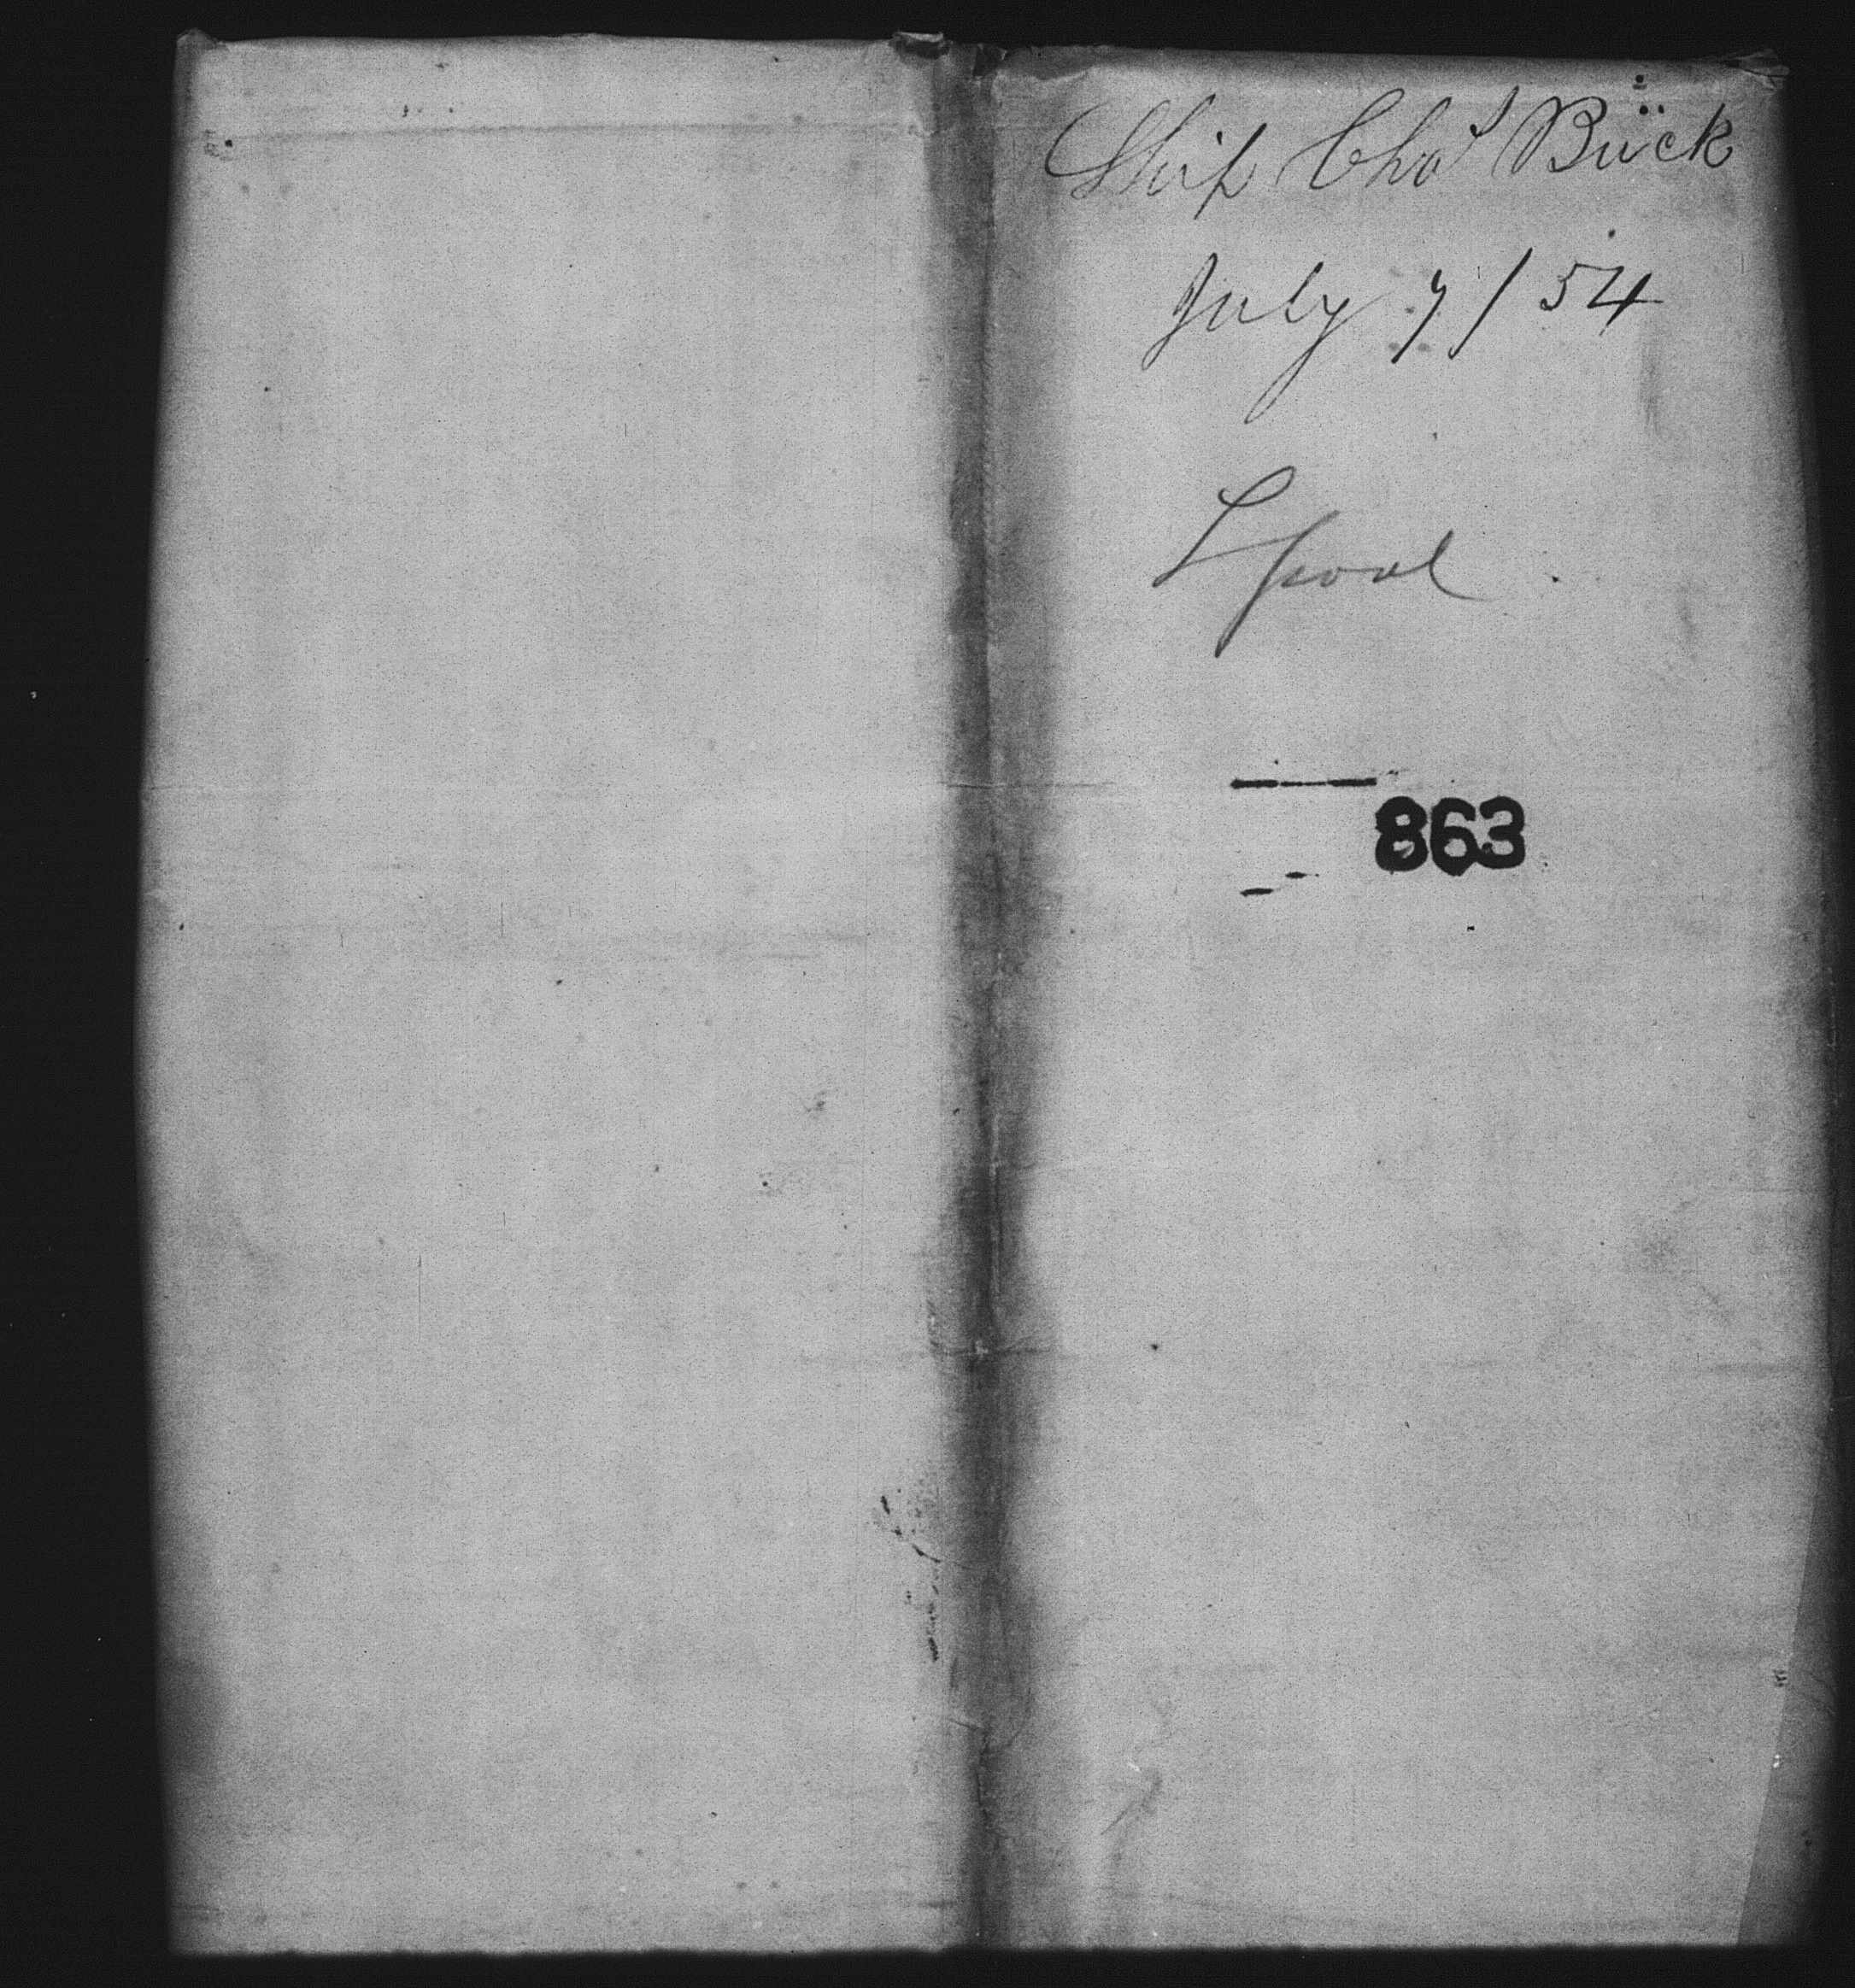 Ship Chas Buck
July 7/54
Lpool
863